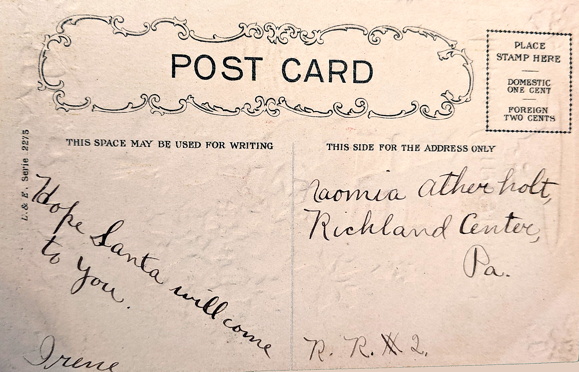 POST CARD
PLACE
STAMP HERE
DOMESTIC
ONE CENT
FOREIGN
TWO CENTS
L. & E. Serie 2275
THIS SPACE MAY BE USED FOR WRITING
Hope Santa will come
to you.
Irene
THIS SIDE FOR THE ADDRESS ONLY
Naomia Atherholt,
Richland Center,
Pa.
R. R. # 2.